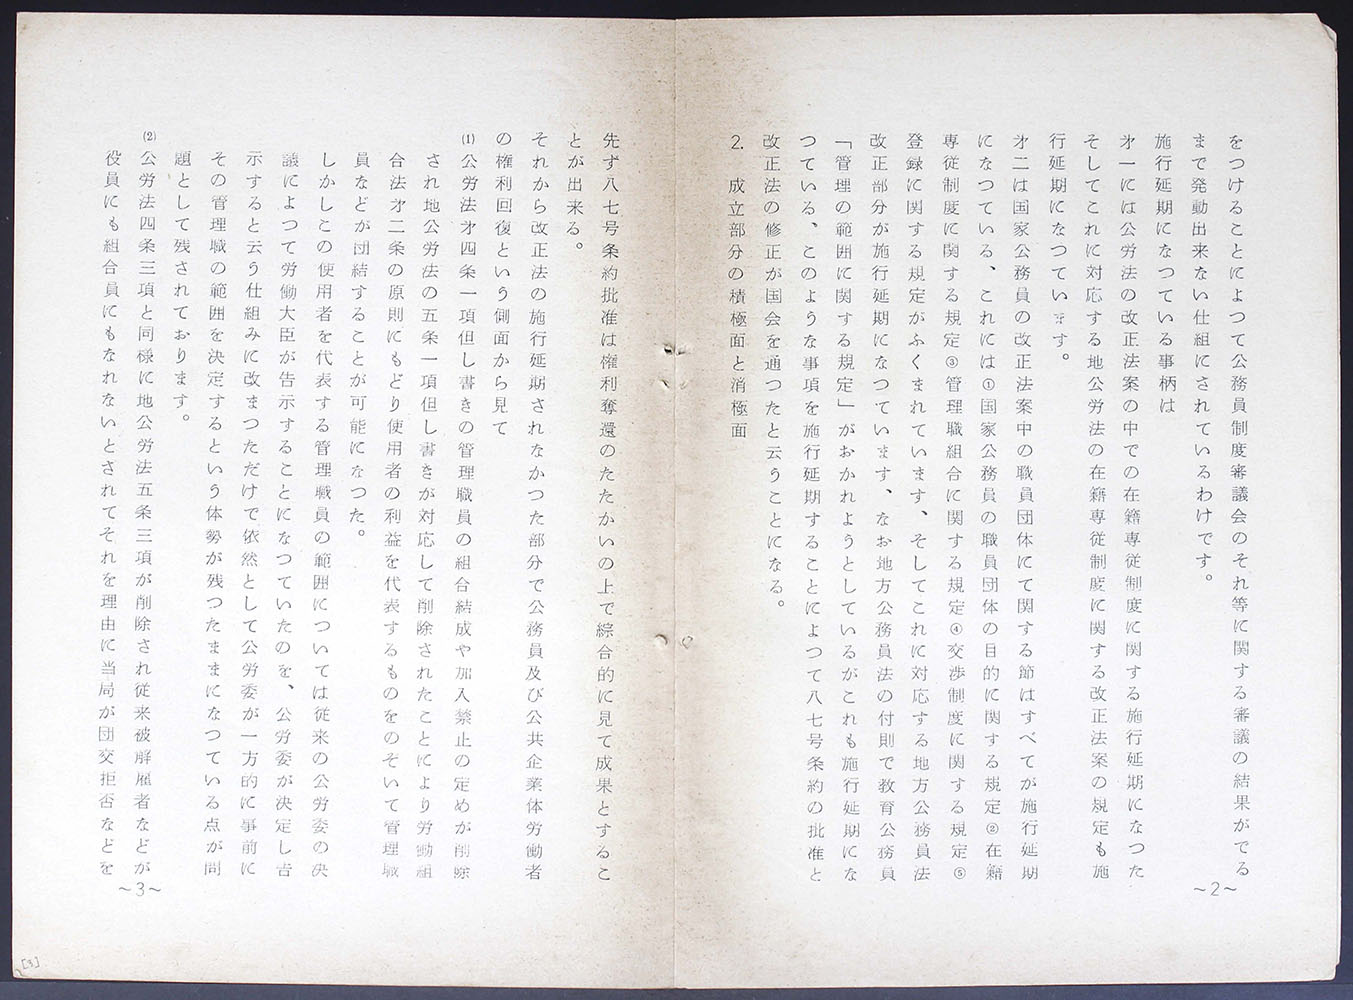 をつけることによつて公務員制度審議会のそれ等に関する審議の結果がでる
まで発動出来ない仕組にされているわけです。
施行延期になつている事柄は
才一には公労法の改正法案の中での在籍専従制度に関する施行延期になつた
そしてこれに対応する地公労法の在籍専従制度に関する改正法案の規定も施
行延期になつています。
才二は国家公務員の改正法案中の職員団体にて関する節はすべてが施行延期
になつている、これには①国家公務員の職員団体の目的に関する規定②在籍
専従制度に関する規定③管理職組合に関する規定④交渉制度に関する規定⑤
登録に関する規定がふくまれています、そしてこれに対応する地方公務員法
改正部分が施行延期になつています、なお地方公務員法の付則で教育公務員
「管理の範囲に関する規定」がおかれようとしているがこれも施行延期にな
つている、このような事項を施行延期することによつて八七号条約の批准と
改正法の修正が国会を通つたと云うことになる。
2. 成立部分の積極面と消極面
~2~
先ず八七号条約批准は権利奪還のたたかいの上で綜合的に見て成果とするこ
とが出来る。
それから改正法の施行延期されなかつた部分で公務員及び公共企業体労働者
の権利回復という側面から見て
(1) 公労法才四条一項但し書きの管理職員の組合結成や加入禁止の定めが削除
され地公労法の五条一項但し書きが対応して削除されたことにより労働組
合法才二条の原則にもどり使用者の利益を代表するものをのそいて管理職
員などが団結することが可能になつた。
しかしこの使用者を代表する管理職員の範囲については従来の公労委の決
議によつて労働大臣が告示することになつていたのを、公労委が決定し告
示すると云う仕組みに改まつただけで依然として公労委が一方的に事前に
その管理職の範囲を決定するという体勢が残つたままになつている点が問
題として残されております。
(2) 公労法四条三項と同様に地公労法五条三項が削除され従来被解雇者などが
役員にも組合員にもなれないとされてそれを理由に当局が団交拒否などを
~3~
[3]